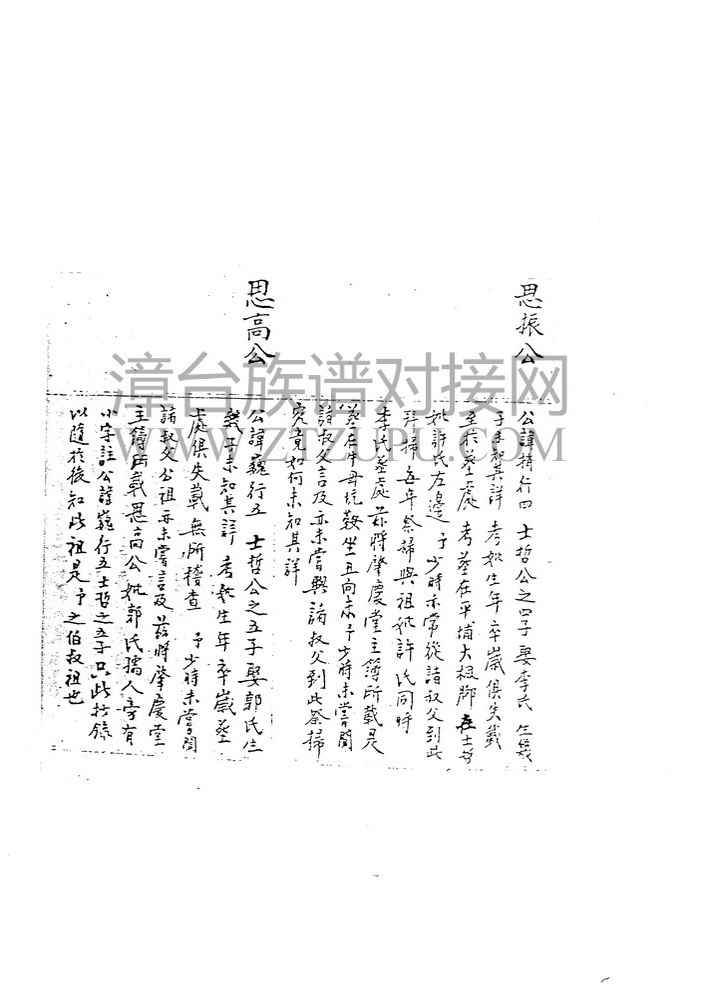 思振公
公諱振行四 士哲公之四子娶李氏 生幾
子未知其詳 考妣生年卒歲俱失載
至於墓處 考墓在平埔大極腳 在士哲
妣許氏左邊 予少時亦常從諸叔父到此
拜掃 每年祭掃與祖妣許氏同時
李氏墓處 茲將肇慶堂主簿所載是
葬在牛母坑 坐丑向未予少時未嘗聞
諸叔父言及亦未嘗與諸叔父到此祭掃
究竟如何未知其詳
思高公
公諱巍行五 士哲公之五子娶郭氏生
幾子未知其詳 考妣生年卒歲墓
處俱失載 無所稽查 予少時未嘗聞
諸叔父公祖亦未嘗言及茲將肇慶堂
主簿所載思高公妣郭氏孺人旁有
小字註公諱巍行五士哲之五子只此抄錄
以隨於後知此祖是予之伯叔祖也
漳台族谱对接网
WWW.ZTZUPU.COM